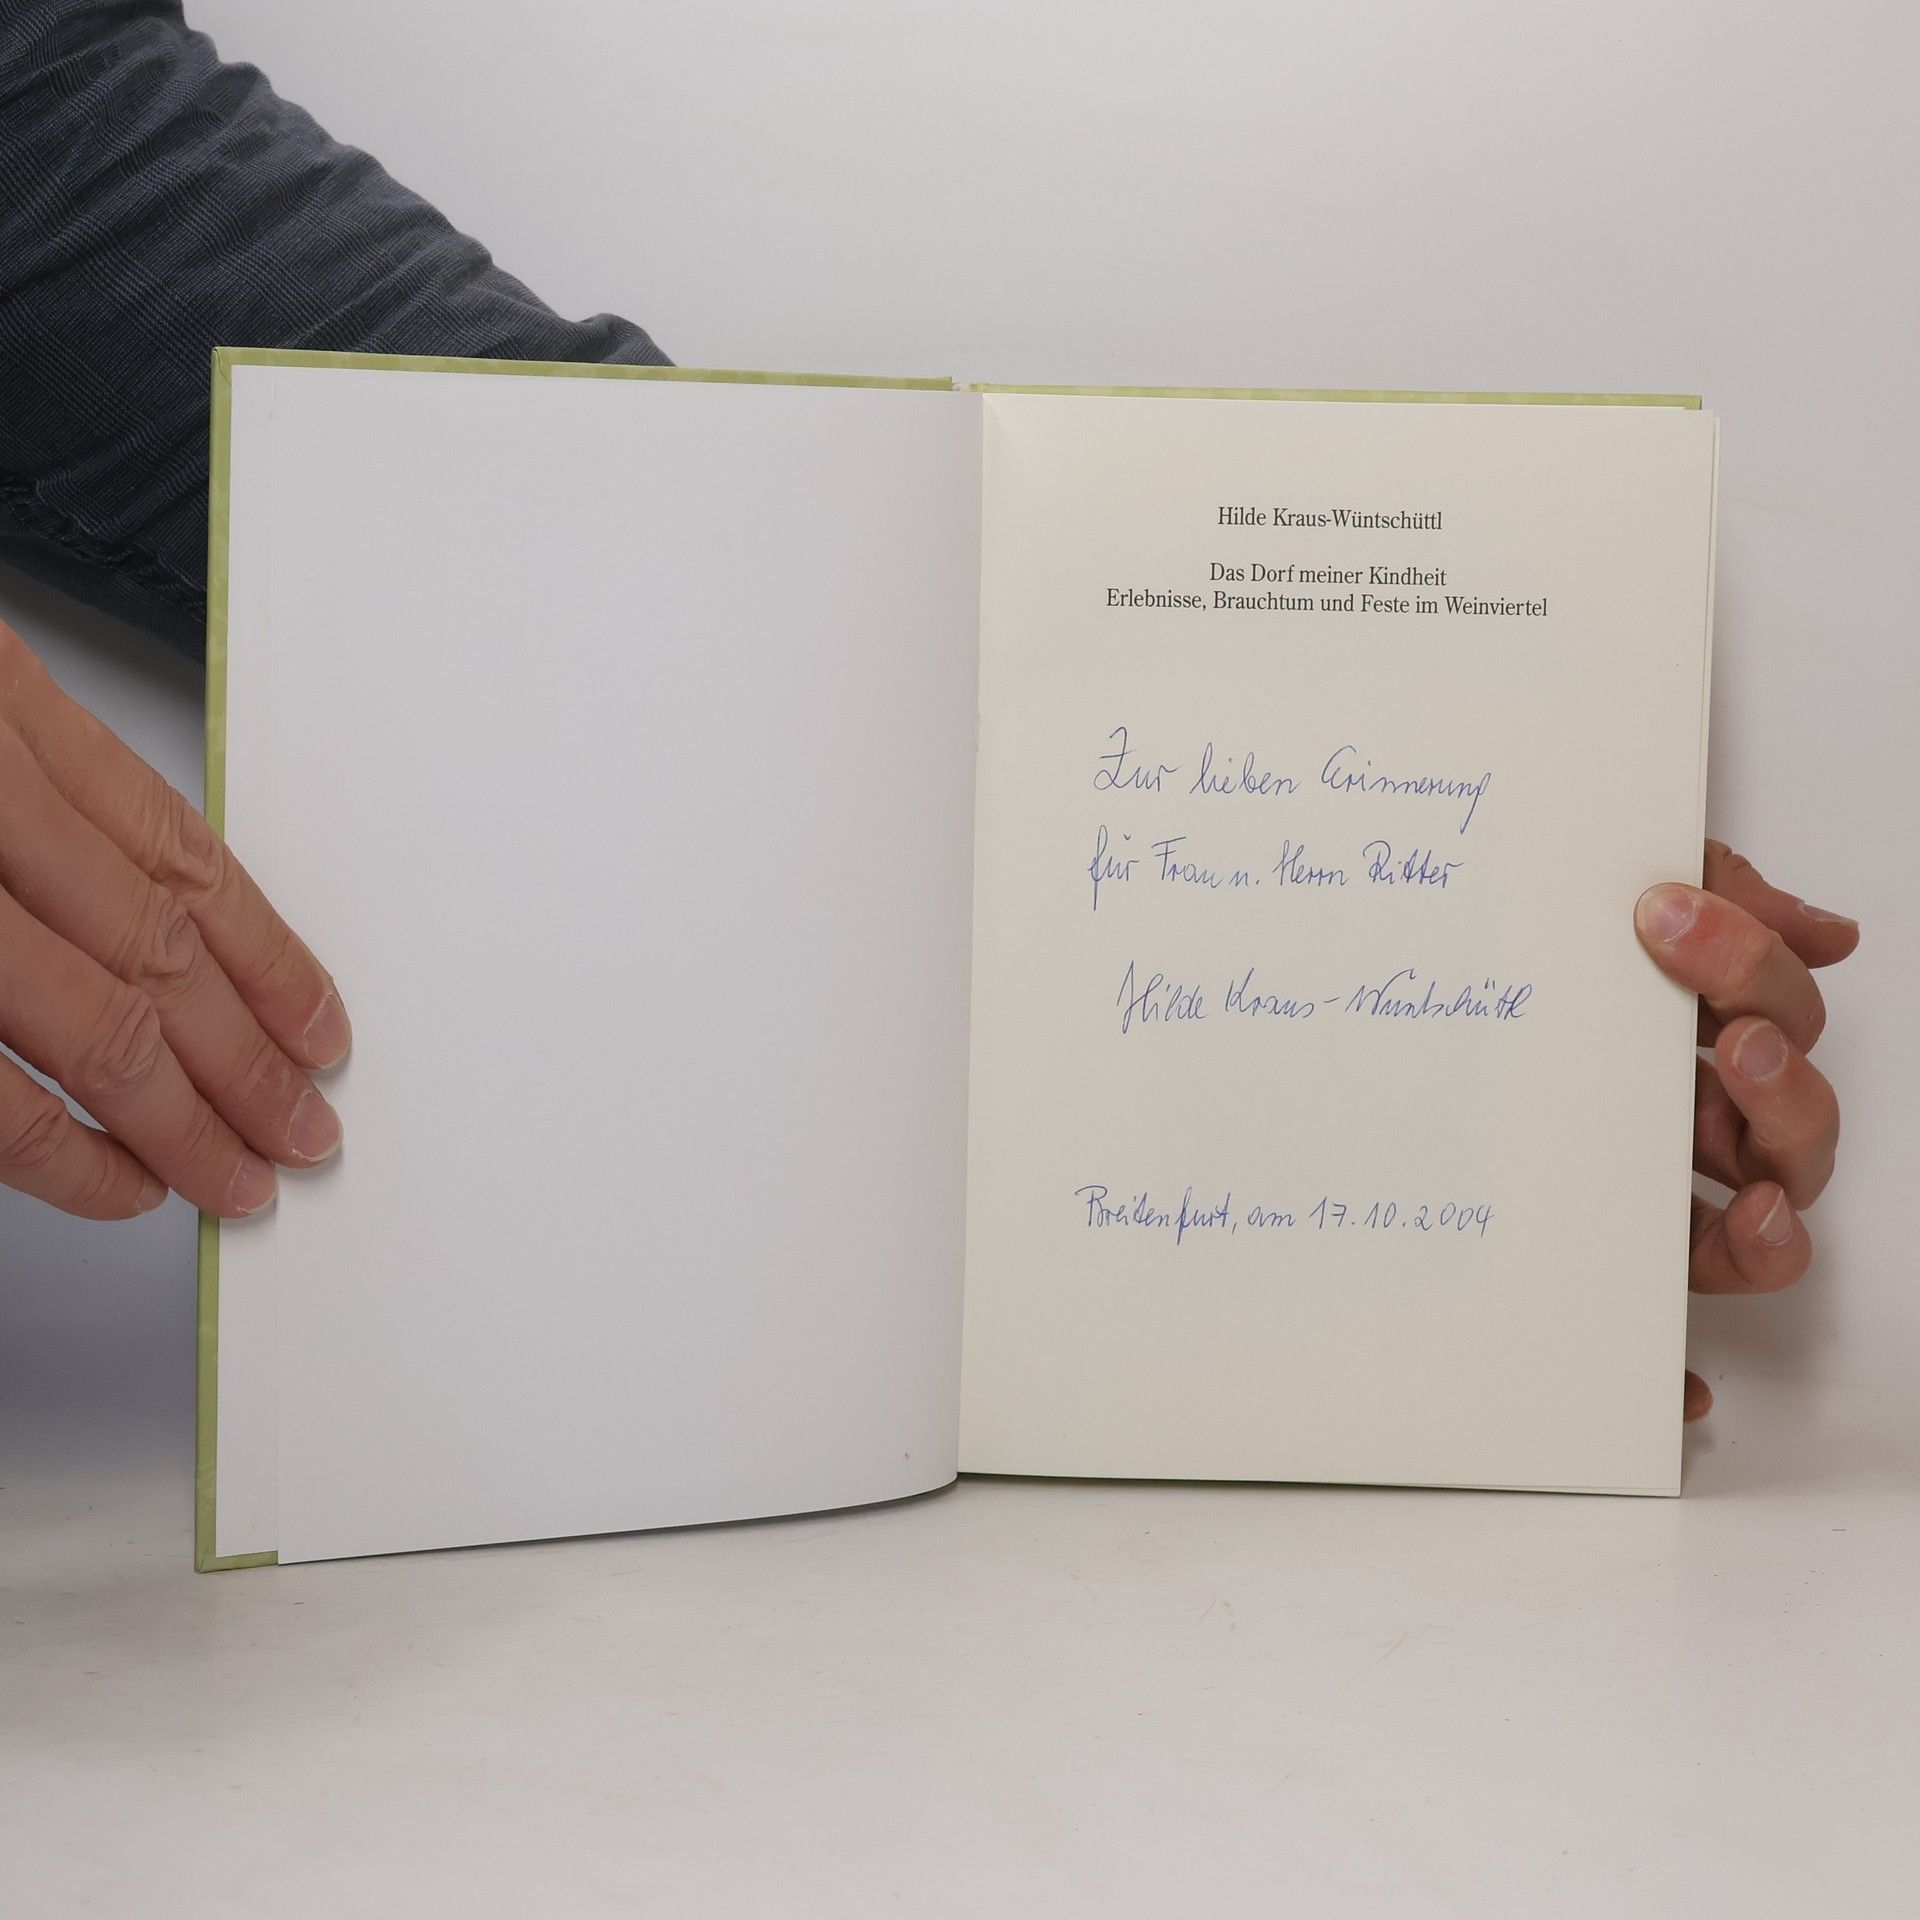 Hilde Kraus-Wüntschüttl
Das Dorf meiner Kindheit
Erlebnisse, Brauchtum und Feste im Weinviertel
Zur lieben Erinnerung
für Frau u. Herrn Ritter
Hilde Kraus-Wüntschüttl
Breitenfurt, am 17.10.2004